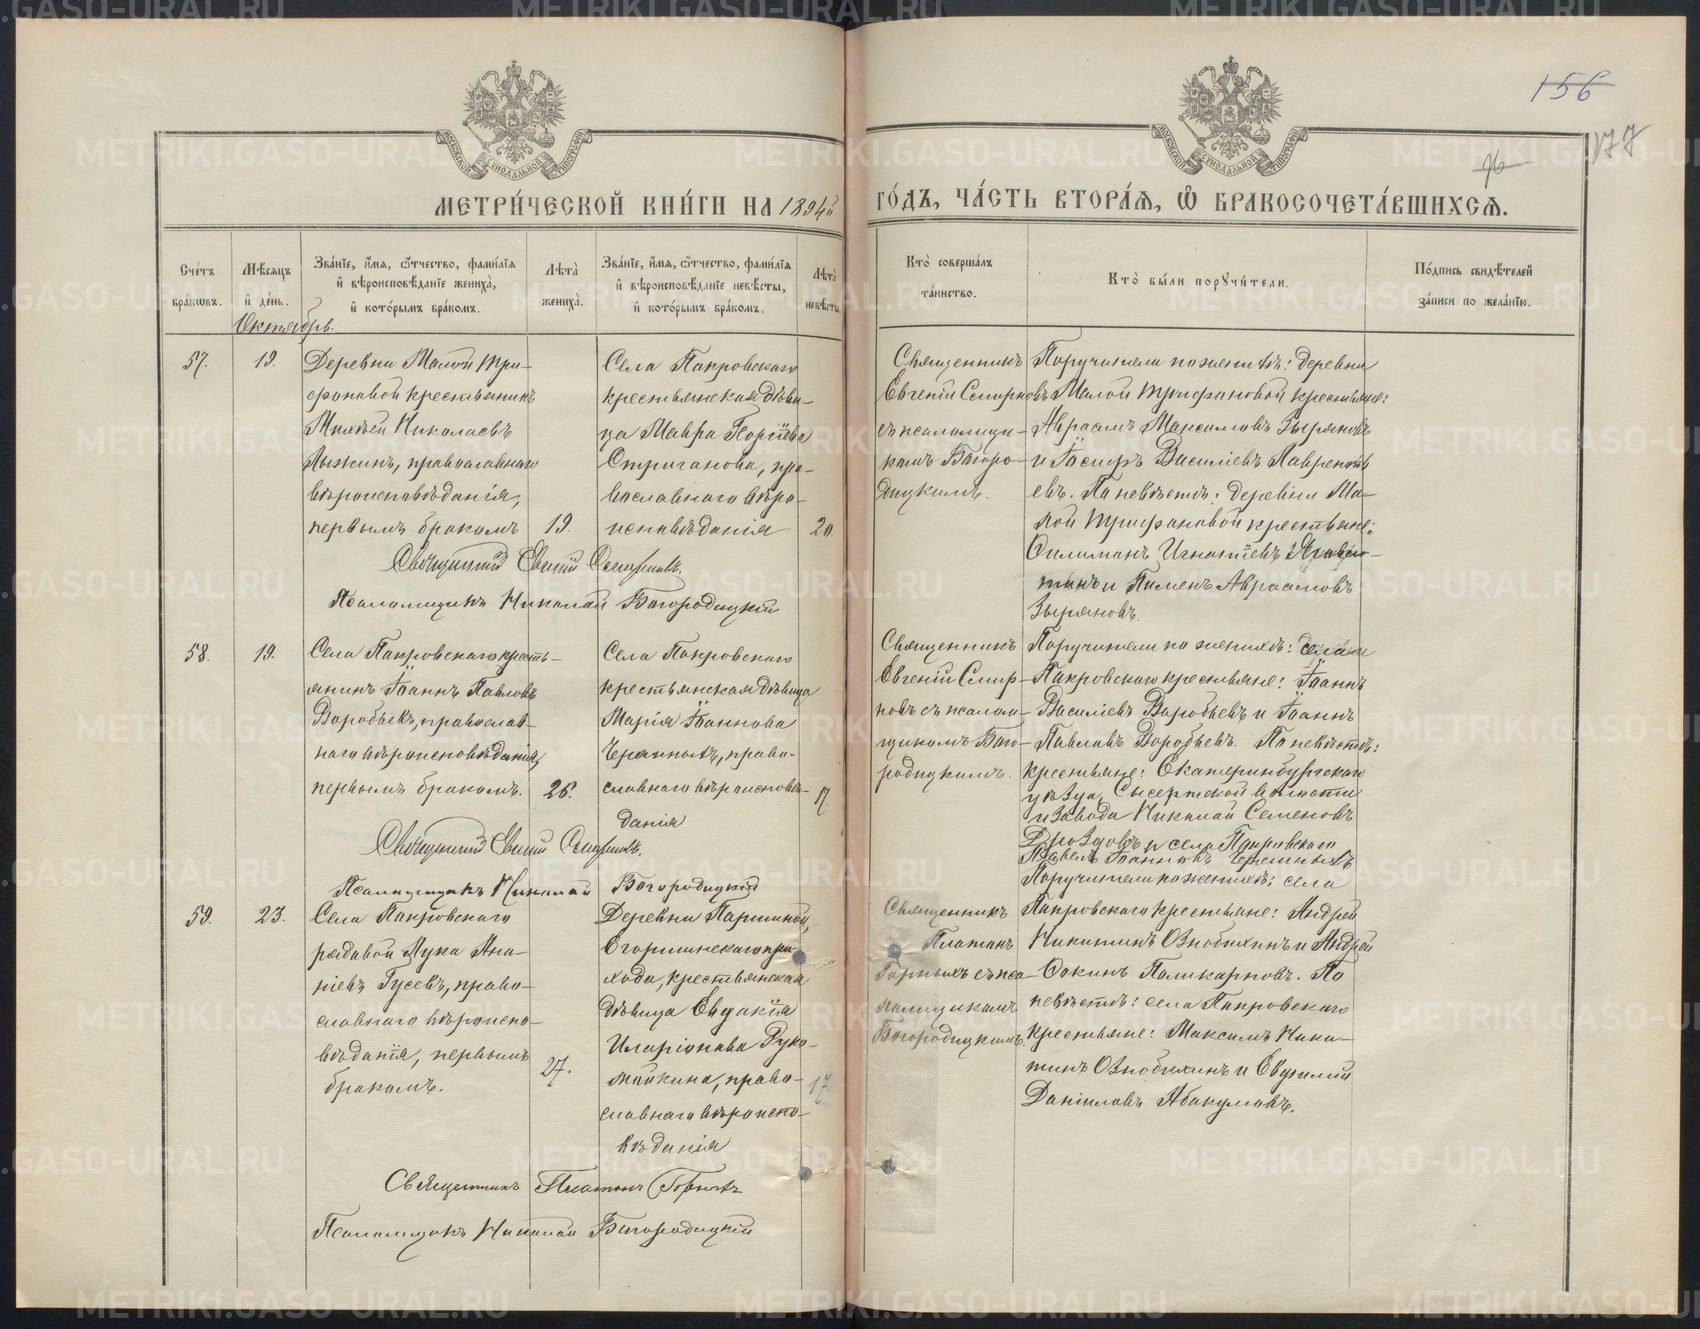 156
177
96
МЕТРИ́ЧЕСКОЙ КНИ́ГИ НА 1894й
ГО́ДЪ, ЧА́СТЬ ВТОРА́Я, Ѡ БРАКОСОЧЕТА́ВШИХСЯ.
Сче́тъ бра́кѡвъ.
Мѣ́сяцъ и де́нь.
Зва́нїе, и́мя, ѻ́тчество, фами́лїя и вѣроисповѣ́данїе жениха̀, и кото́рымъ бра́комъ.
Лѣта̀ жениха̀.
Зва́нїе, и́мя, ѻ́тчество, фами́лїя и вѣроисповѣ́данїе невѣ́сты, и кото́рымъ бра́комъ.
Лѣта̀ невѣ́сты.
Кто̀ соверша́лъ та́инство.
Кто̀ бы́ли поручи́тели.
По́дпись свидѣ́телей за́писи по жела́нїю.
Октябрь
57.
19.
Деревни Малой Три-
фоновой крестьянинъ
Николаевъ
православнаго
вѣроисповѣданія,
первымъ бракомъ
19.
Села Покровскаго
крестьянская дѣви-
ца Мавра Георгіева
Стриганова, пра-
вославнаго вѣро-
исповѣданія
20
Священникъ
Евгеній Смирновъ
съ псаломщи-
комъ Богоро-
дицкимъ.
Поручители по женихѣ: деревни
Малой Трифоновой крестьяне:
Авраамъ Максимовъ Зыряновъ
и Іосифъ Василіевъ Лаврентьевъ
По невѣстѣ: деревни Ма-
лой Трифоновой крестьяне:
Филимонъ Игнатіевъ
и Пименъ Авраамовъ
Зыряновъ.
Священникъ Евгеній Смирновъ.
Псаломщикъ Николай Богородицкій
58.
19.
Села Покровскаго кресть-
янинъ Іоаннъ Павловъ
Воробьевъ, православ-
наго вѣроисповѣданія,
первымъ бракомъ.
26.
Села Покровскаго
крестьянская дѣвица
Марія Іоаннова
Черемныхъ, право-
славнаго вѣроисповѣ-
данія
17.
Священникъ
Евгеній Смир-
новъ съ псалом-
щикомъ Бого-
родицкимъ.
Поручители по женихѣ: села
Покровскаго крестьяне: Іоаннъ
Василіевъ Воробьевъ и Іоаннъ
Павловъ Воробьевъ. По невѣстѣ:
крестьяне: Екатеринбургскаго
уѣзда, Сысертской волости
и завода Николай Семеновъ
Дроздовъ и села Покровскаго
Павелъ Іоанновъ Черемныхъ
Священникъ Евгеній Смирновъ.
Псаломщикъ Николай Богородицкій
59.
23.
Села Покровскаго
рядовой Лука Ана-
ніевъ Гусевъ, право-
славнаго вѣроиспо-
вѣданія, первымъ
бракомъ.
27.
Деревни Паршиной,
Егоршинскаго при-
хода, крестьянская
дѣвица Евдокія
Иларіонова Руко-
мойкина, право-
славнаго вѣроиспо-
вѣданія
17
Священникъ
Платонъ
Горныхъ съ пса-
ломщикомъ
Богородицкимъ.
Поручители по женихѣ: села
Покровскаго крестьяне: Андрей
Никитинъ Ознобихинъ и Андрей
Фокинъ Поликарповъ. По
невѣстѣ: села Покровскаго
крестьяне: Максимъ Ники-
тинъ Ознобихинъ и Евфимій
Даніиловъ Абакумовъ.
Священникъ Платонъ Горныхъ
Псаломщикъ Николай Богородицкій
METRIKI.GASO-URAL.RU